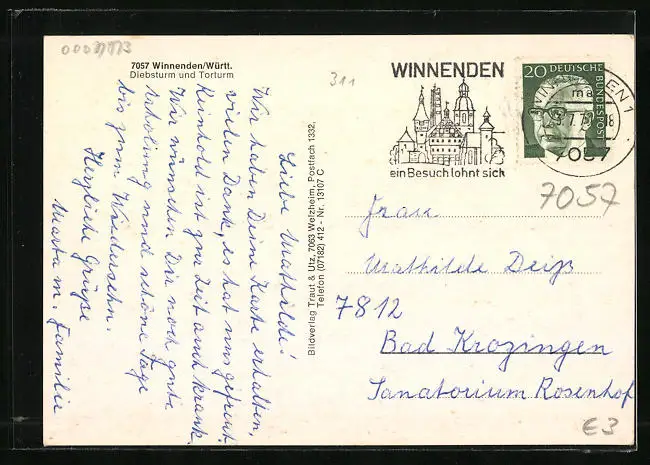 7057 Winnenden/Württ.
Diebsturm und Torturm
311
WINNENDEN
ein Besuch lohnt sich
20 DEUTSCHE BUNDESPOST
WINNENDEN 1
ma
7057
7057
Liebe Mathilde!
Wir haben Deine Karte erhalten,
vielen Dank, es hat uns gefreut.
Reinhold ist zur Zeit auch krank.
Wir wünschen Dir noch gute
Erholung und schöne Tage
bis zum Wiedersehn.
Herzliche Grüße
Marta m. Familie
Bildverlag Traut & Utz, 7063 Welzheim, Postfach 1332,
Telefon (07182) 412 - Nr. 13107 C
Frau
Mathilde Deiß
7812
Bad Krozingen
Sanatorium Rosenhof
€3